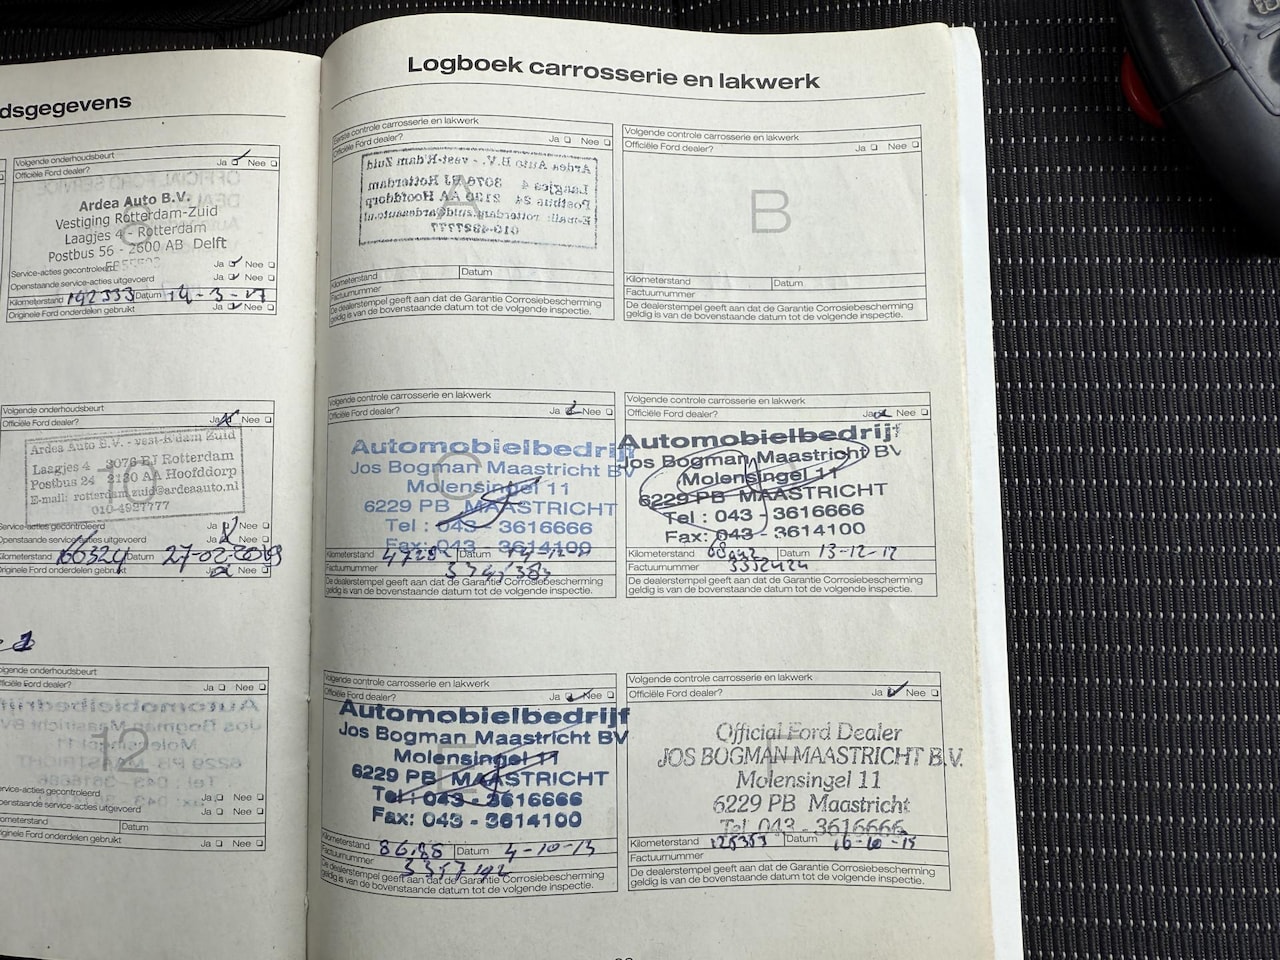 dsgegevens
Volgende onderhoudsbeurt
Officiële Ford dealer?
Ja Nee
Ardea Auto B.V.
Vestiging Rotterdam-Zuid
Laagjes 4 - Rotterdam
Postbus 56 - 2600 AB Delft
Service-acties gecontroleerd
Ja Nee
Openstaande service-acties uitgevoerd
Ja Nee
Kilometerstand 142333 Datum 14-3-17
Originele Ford onderdelen gebruikt
Ja Nee
Volgende onderhoudsbeurt
Officiële Ford dealer?
Ja Nee
Ardea Auto B.V. - vest-R'dam Zuid
Laagjes 4 3076 BJ Rotterdam
Postbus 24 2130 AA Hoofddorp
E-mail: rotterdam.zuid@ardeaauto.nl
010-4927777
10
Service-acties gecontroleerd
Ja Nee
Openstaande service-acties uitgevoerd
Ja Nee
Kilometerstand 166324 Datum 27-02-2019
Originele Ford onderdelen gebruikt
Ja Nee
Volgende onderhoudsbeurt
Officiële Ford dealer?
Ja Nee
12
Service-acties gecontroleerd
Ja Nee
Openstaande service-acties uitgevoerd
Ja Nee
Kilometerstand Datum
Originele Ford onderdelen gebruikt
Ja Nee
Logboek carrosserie en lakwerk
Eerste controle carrosserie en lakwerk
Officiële Ford dealer?
Ja Nee
Ardea Auto B.V. - vest-R'dam Zuid
Laagjes 4 3076 BJ Rotterdam
Postbus 24 2130 AA Hoofddorp
E-mail: rotterdam.zuid@ardeaauto.nl
010-4927777
A
Kilometerstand Datum
Factuurnummer
De dealerstempel geeft aan dat de Garantie Corrosiebescherming
geldig is van bovenstaande datum tot de volgende inspectie.
Volgende controle carrosserie en lakwerk
Officiële Ford dealer?
Ja Nee
B
Kilometerstand Datum
Factuurnummer
De dealerstempel geeft aan dat de Garantie Corrosiebescherming
geldig is van bovenstaande datum tot de volgende inspectie.
Volgende controle carrosserie en lakwerk
Officiële Ford dealer?
Ja Nee
C
Automobielbedrijf
Jos Bogman Maastricht BV
Molensingel 11
6229 PB MAASTRICHT
Tel : 043 - 3616666
Fax: 043 - 3614100
Kilometerstand Datum
Factuurnummer
De dealerstempel geeft aan dat de Garantie Corrosiebescherming
geldig is van bovenstaande datum tot de volgende inspectie.
Volgende controle carrosserie en lakwerk
Officiële Ford dealer?
Ja Nee
Automobielbedrijf
Jos Bogman Maastricht BV
Molensingel 11
6229 PB MAASTRICHT
Tel : 043 - 3616666
Fax: 043 - 3614100
Kilometerstand Datum 13-12-12
Factuurnummer 3332424
De dealerstempel geeft aan dat de Garantie Corrosiebescherming
geldig is van bovenstaande datum tot de volgende inspectie.
Volgende controle carrosserie en lakwerk
Officiële Ford dealer?
Ja Nee
E
Automobielbedrijf
Jos Bogman Maastricht BV
Molensingel 11
6229 PB MAASTRICHT
Tel : 043 - 3616666
Fax: 043 - 3614100
Kilometerstand Datum 4-10-13
Factuurnummer
De dealerstempel geeft aan dat de Garantie Corrosiebescherming
geldig is van bovenstaande datum tot de volgende inspectie.
Volgende controle carrosserie en lakwerk
Officiële Ford dealer?
Ja Nee
Official Ford Dealer
JOS BOGMAN MAASTRICHT B.V.
Molensingel 11
6229 PB Maastricht
Tel. 043 - 3616666
Kilometerstand 125353 Datum 16-10-15
Factuurnummer
De dealerstempel geeft aan dat de Garantie Corrosiebescherming
geldig is van bovenstaande datum tot de volgende inspectie.